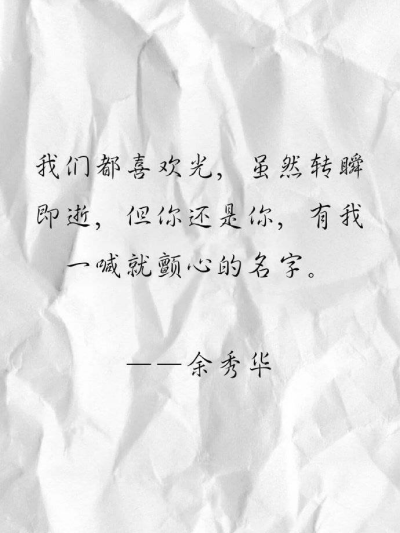 我们都喜欢光，虽然转瞬
即逝，但你还是你，有我
一喊就颤心的名字。
——余秀华